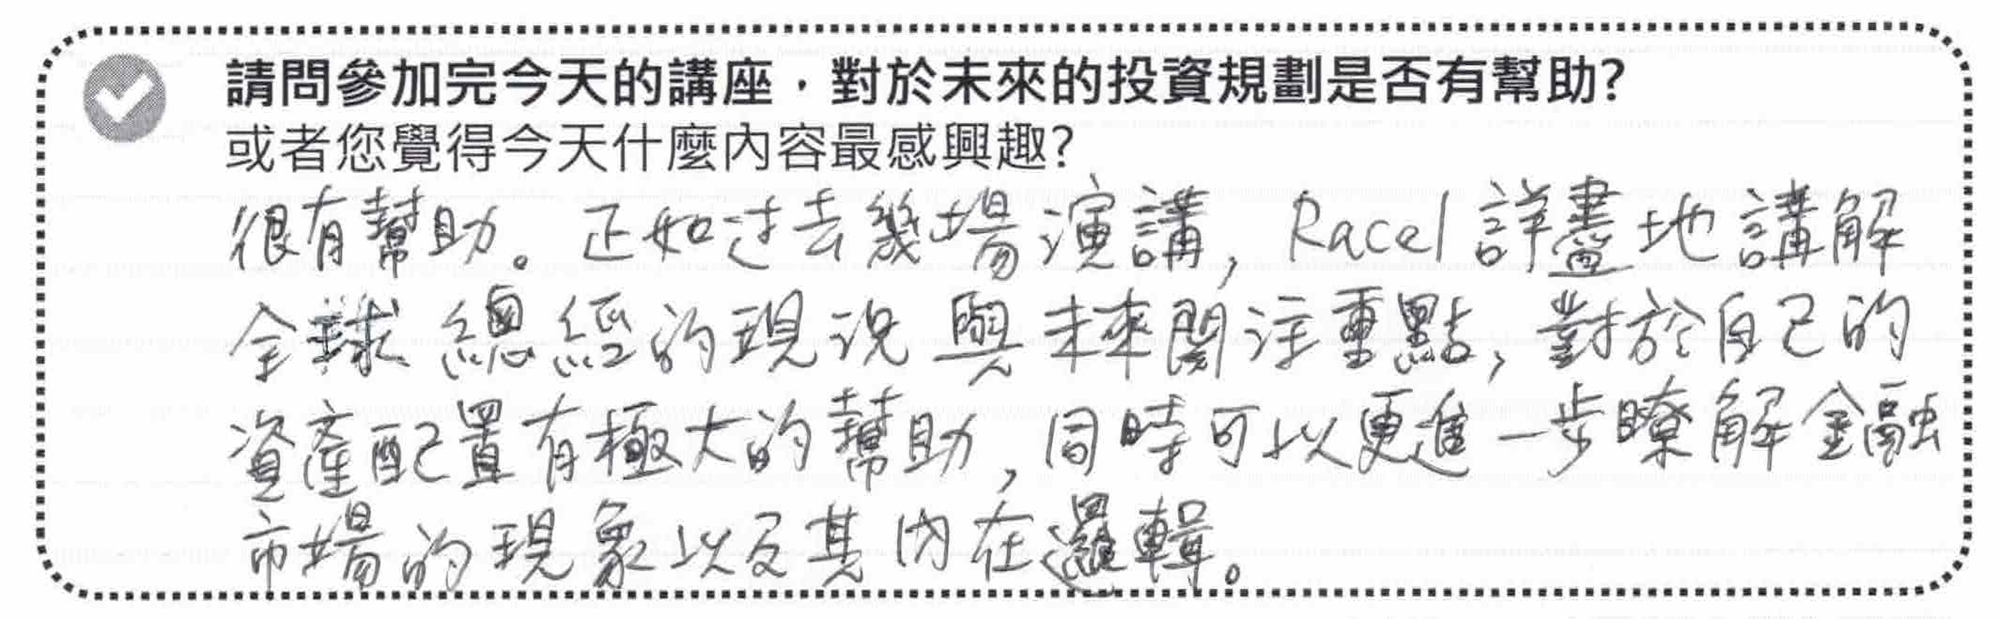 請問參加完今天的講座，對於未來的投資規劃是否有幫助?
或者您覺得今天什麼內容最感興趣?
很有幫助。正如过去幾場演講, Racel 詳盡地講解
全球總經的現況與未來関注重點, 對於自己的
資產配置有極大的幫助, 同時可以更進一步瞭解金融
市場的現象以及其內在邏輯。